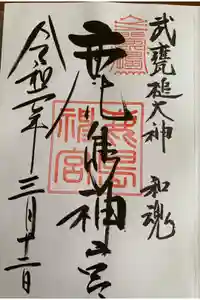 武甕槌大神 和魂
鹿島神宮
令和二年 三月十二日
鹿島神宮